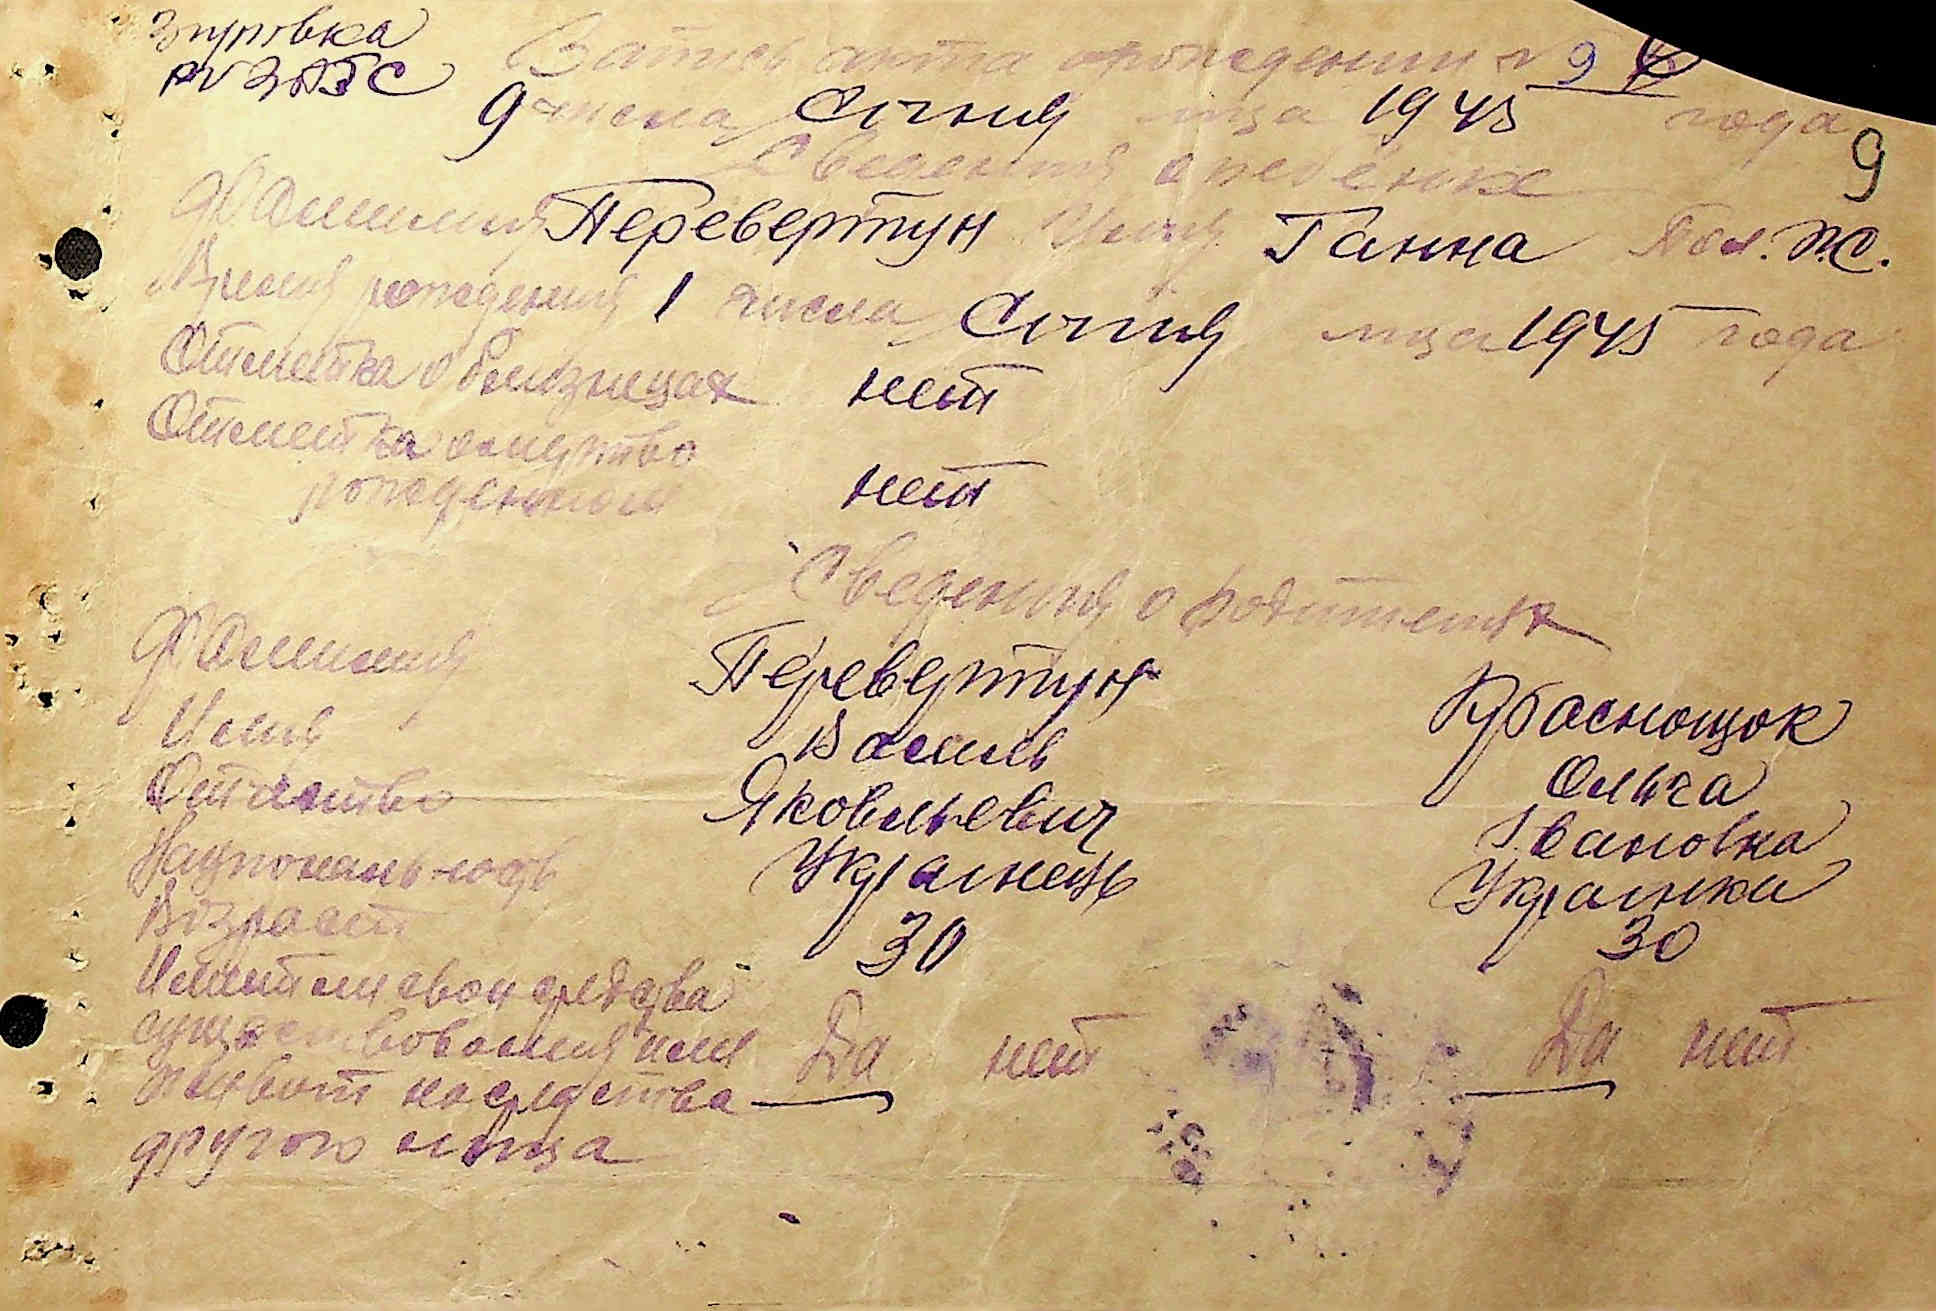 Згуровка
РV ЗАГС
Запись акта о рождении № 9
9 числа Січня мца 1945 года
9
Сведения о ребенке
Фамилия Перевертун Имя Ганна Пол. Ж.
Время рождения 1 числа Січня мца 1945 года
Отметка о близнецах нет
Отметка о мертво
рожденном нет
Сведения о родителях
Фамилия Перевертун Краснощок
Имя Василь Ольга
Отчество Яковльевич Івановна
Национальность Украінець Украінка
Возраст 30 30
Имеет ли свои средства
существования или Да нет Да нет
живет на средства
другого лица